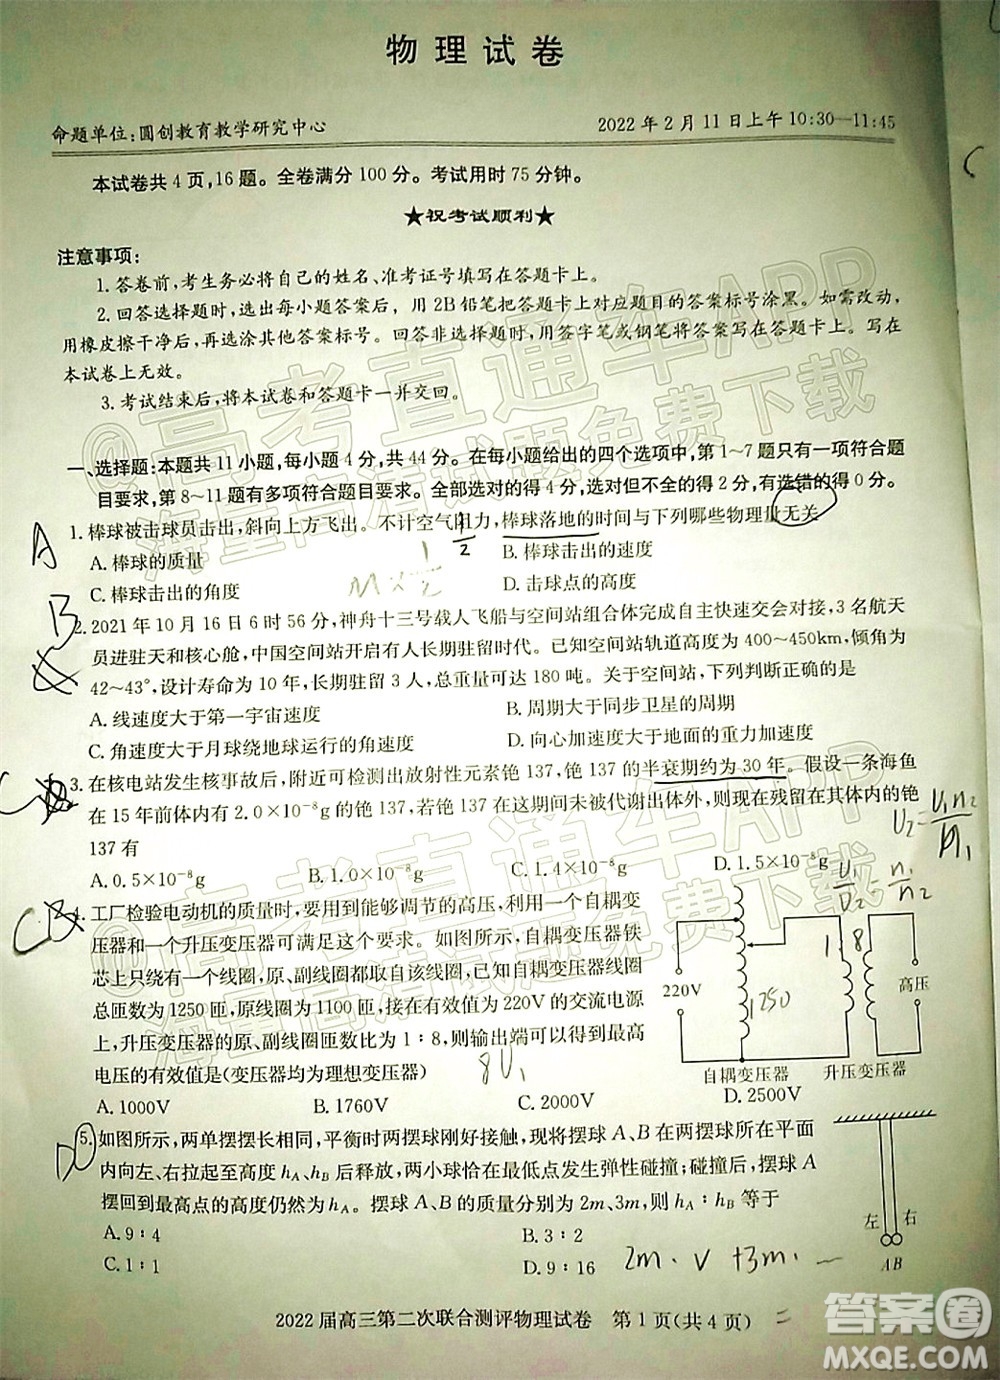 物理试卷
命题单位:圆创教育教学研究中心 2022年2月11日上午10:30—11:45
本试卷共4页,16题。全卷满分100分。考试用时75分钟。
★祝考试顺利★
注意事项:
1.答卷前,考生务必将自己的姓名、准考证号填写在答题卡上。
2.回答选择题时,选出每小题答案后,用2B铅笔把答题卡上对应题目的答案标号涂黑。如需改动,
用橡皮擦干净后,再选涂其他答案标号。回答非选择题时,用签字笔或钢笔将答案写在答题卡上。写在
本试卷上无效。
3.考试结束后,将本试卷和答题卡一并交回。
一、选择题:本题共11小题,每小题4分,共44分。在每小题给出的四个选项中,第1~7题只有一项符合题
目要求,第8~11题有多项符合题目要求。全部选对的得4分,选对但不全的得2分,有选错的得0分。
A
1.棒球被击球员击出,斜向上方飞出。不计空气阻力,棒球落地的时间与下列哪些物理量无关
A.棒球的质量 B.棒球击出的速度
C.棒球击出的角度 D.击球点的高度
B
2.2021年10月16日6时56分,神舟十三号载人飞船与空间站组合体完成自主快速交会对接,3名航天
员进驻天和核心舱,中国空间站开启有人长期驻留时代。空间站轨道高度为400~450km,倾角为
42~43°,设计寿命为10年,长期驻留3人,总重量可达180吨。关于空间站,下列判断正确的是
A.线速度大于第一宇宙速度 B.周期大于同步卫星的周期
C.角速度大于月球绕地球运行的角速度 D.向心加速度大于地面的重力加速度
C
3.在核电站发生核事故后,附近可检测出放射性元素铯137,铯137的半衰期约为30年。假设一条海鱼
在15年前体内有2.0×10⁻⁸g的铯137,若铯137在这期间未被代谢出体外,则现在残留在其体内的铯
137有
A.0.5×10⁻⁸g B.1.0×10⁻⁸g C.1.4×10⁻⁸g D.1.5×10⁻⁸g
C
4.工厂检验电动机的质量时,要用到能够调节的高压,利用一个自耦变
压器和一个升压变压器可满足这个要求。如图所示,自耦变压器铁
芯上只绕有一个线圈,原、副线圈都只取自该线圈,已知自耦变压器
总匝数为1250匝,原线圈为1100匝,接在有效值为220V的交流电源
上,升压变压器的原、副线圈匝数比为1∶8,则输出端可以得到最高
电压的有效值是(变压器均为理想变压器)
A.1000V B.1760V C.2000V D.2500V
220V 高压
自耦变压器 升压变压器
1250
1 . 8
8U₁
D
5.如图所示,两单摆摆长相同,平衡时两摆球刚好接触,现将摆球A、B在两摆线所在平面
内向左、右拉起至高度hA、hB后释放,两小球恰在最低点发生弹性碰撞;碰撞后,摆球
A摆回到最高点的高度仍然为hA。摆球A、B的质量分别为2m、3m,则hA∶hB等于
A.9∶4 B.3∶2
C.1∶1 D.9∶16
左 右
AB
2m·V +3m·
2022届高三第二次联合测评物理试卷 第1页(共4页)
@高考直通车APP
海量高清试题免费下载
@高考直通车APP
海量高清试题免费下载
答案圈
MXQE.COM